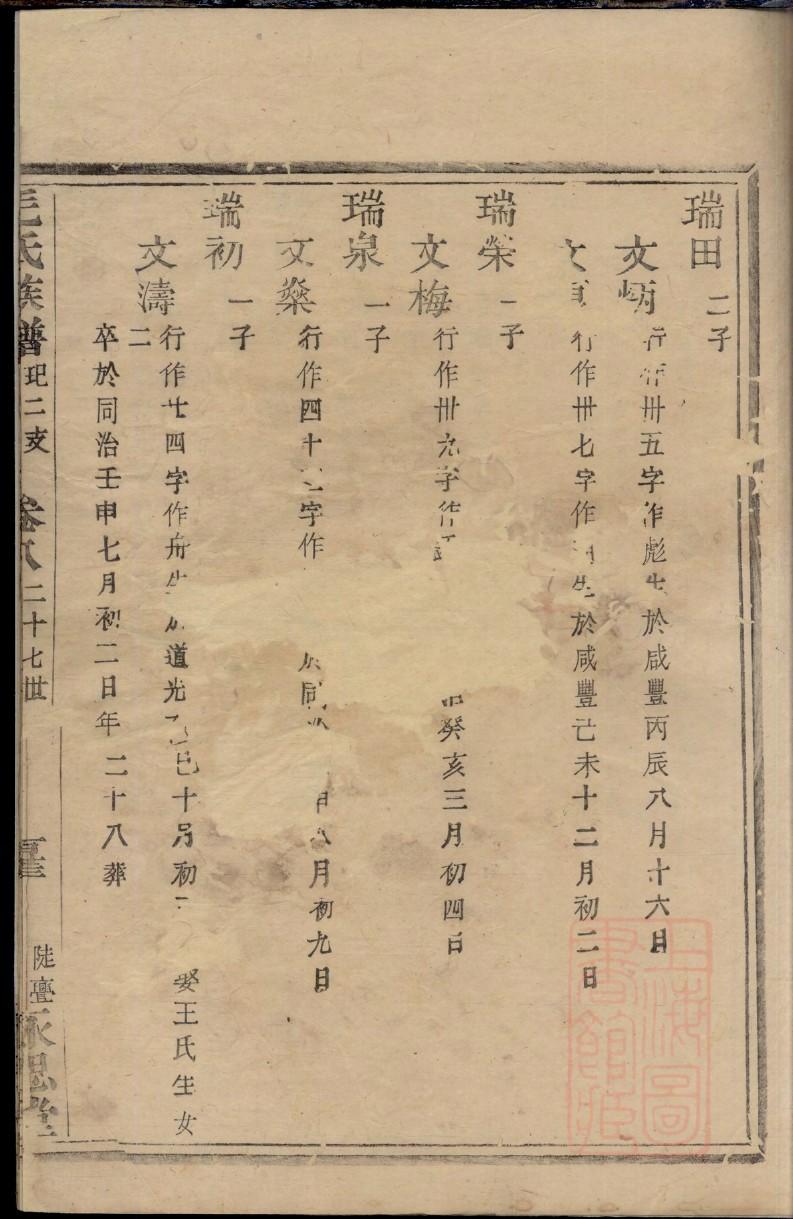 瑞田 二子
文炳 行作卅五字作彪生於咸豐丙辰八月十六日
文 行作卅七字作 生於咸豐己未十二月初二日
瑞榮 一子
文梅 行作卅九字作 癸亥三月初四日
瑞泉 一子
文燊 行作四十 字作 於同 月 月初九日
瑞初 一子
文濤 行作廿四字作舟生於道光乙巳十月初 娶王氏生女
二
卒於同治壬申七月初二日年二十八葬
毛氏族譜 玘二支 卷八 二十七世 陡亹永思堂
上海圖書館藏